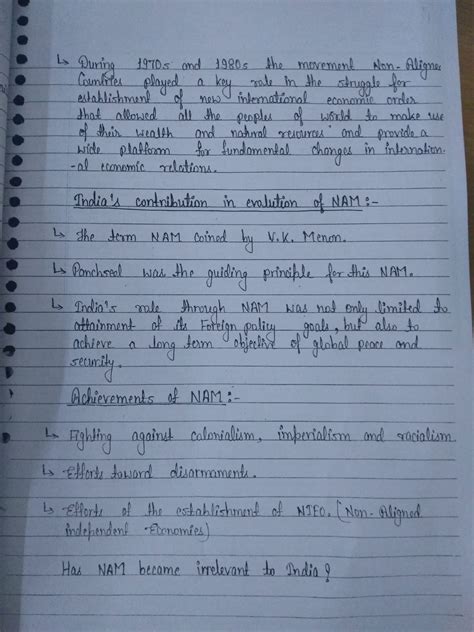 ↳ During 1970s and 1980s the movement Non-Aligned
Countries played a key role in the struggle for
establishment of new international economic order
that allowed all the peoples of world to make use
of their wealth and natural resources and provide a
wide platform for fundamental changes in internation-
-al economic relations.
India's contribution in evolution of NAM :-
↳ The term NAM coined by V.K. Menon.
↳ Panchseel was the guiding principle for this NAM.
↳ India's role through NAM was not only limited to
attainment of its Foreign policy goals, but also to
achieve a long term objective of global peace and
security.
Achievements of NAM :-
↳ Fighting against colonialism, imperialism and racialism
↳ Efforts toward disarmaments.
↳ Efforts of the establishment of NIEO. (Non-Aligned
independent Economies)
Has NAM became irrelevant to India ?